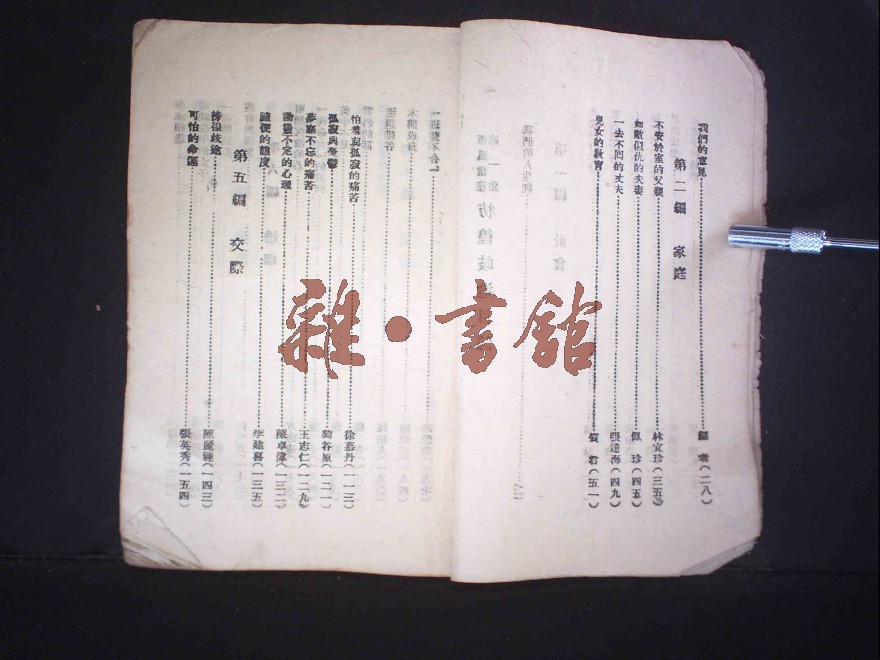 我們的意見……編者(二八)
第二編 家庭
不安於室的父親……林宜珍(三五)
如敵似仇的夫妻……佩珍(四五)
一去不回的丈夫……張達海(四九)
兒女的教育……賀君(五一)
怕羞與孤寂的痛苦……徐慕丹(一一三)
孤寂與憂鬱……谷原(一二一)
夢寐不忘的痛苦……王志仁(一二九)
動盪不定的心理……陳卓偉(一三二)
隨便的態度……李建喜(一三五)
第五編 交際
徬徨歧途……陳麗璉(一四三)
可怕的命運……張英秀(一五四)
雜·書館